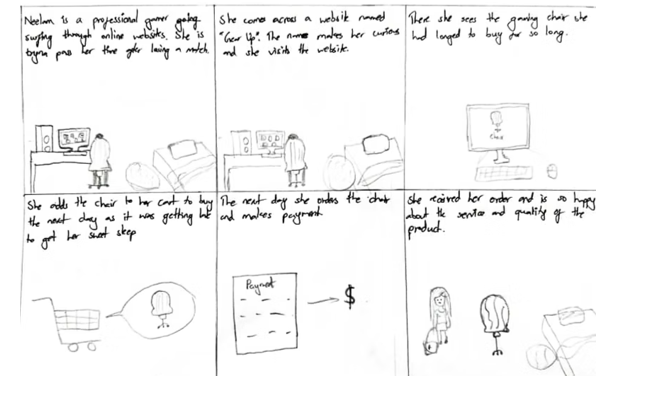 Neelam is a professional gamer going
surfing through online websites. She is
tryna pass her time after losing a match.
She comes across a website named
"Gear Up". The name makes her curious
and she visits the website.
There she sees the gaming chair she
had longed to buy for so long.
Chair
She adds the chair to her cart to buy
the next day as it was getting late
to get her sweet sleep
The next day she orders the chair
and makes payment.
Payment
$
She received her order and is so happy
about the service and quality of the
product.